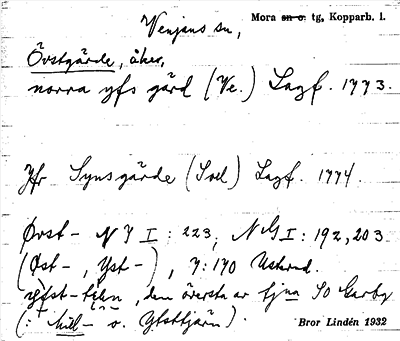 Venjans sn,
Mora sn o. tg, Kopparb. l.
Övstgärde, åker,
norra yfs gärd (Ve.) Lagf. 1773.
Jfr Synsgärde (Sol) Lagf. 1774.
Övst- NJ I: 223, NGI: 192, 203
(Öst-, Yst-), 7:170
Yfst- den översta av SO Garby
(: o. Ytsttjärn).
Bror Lindén 1932